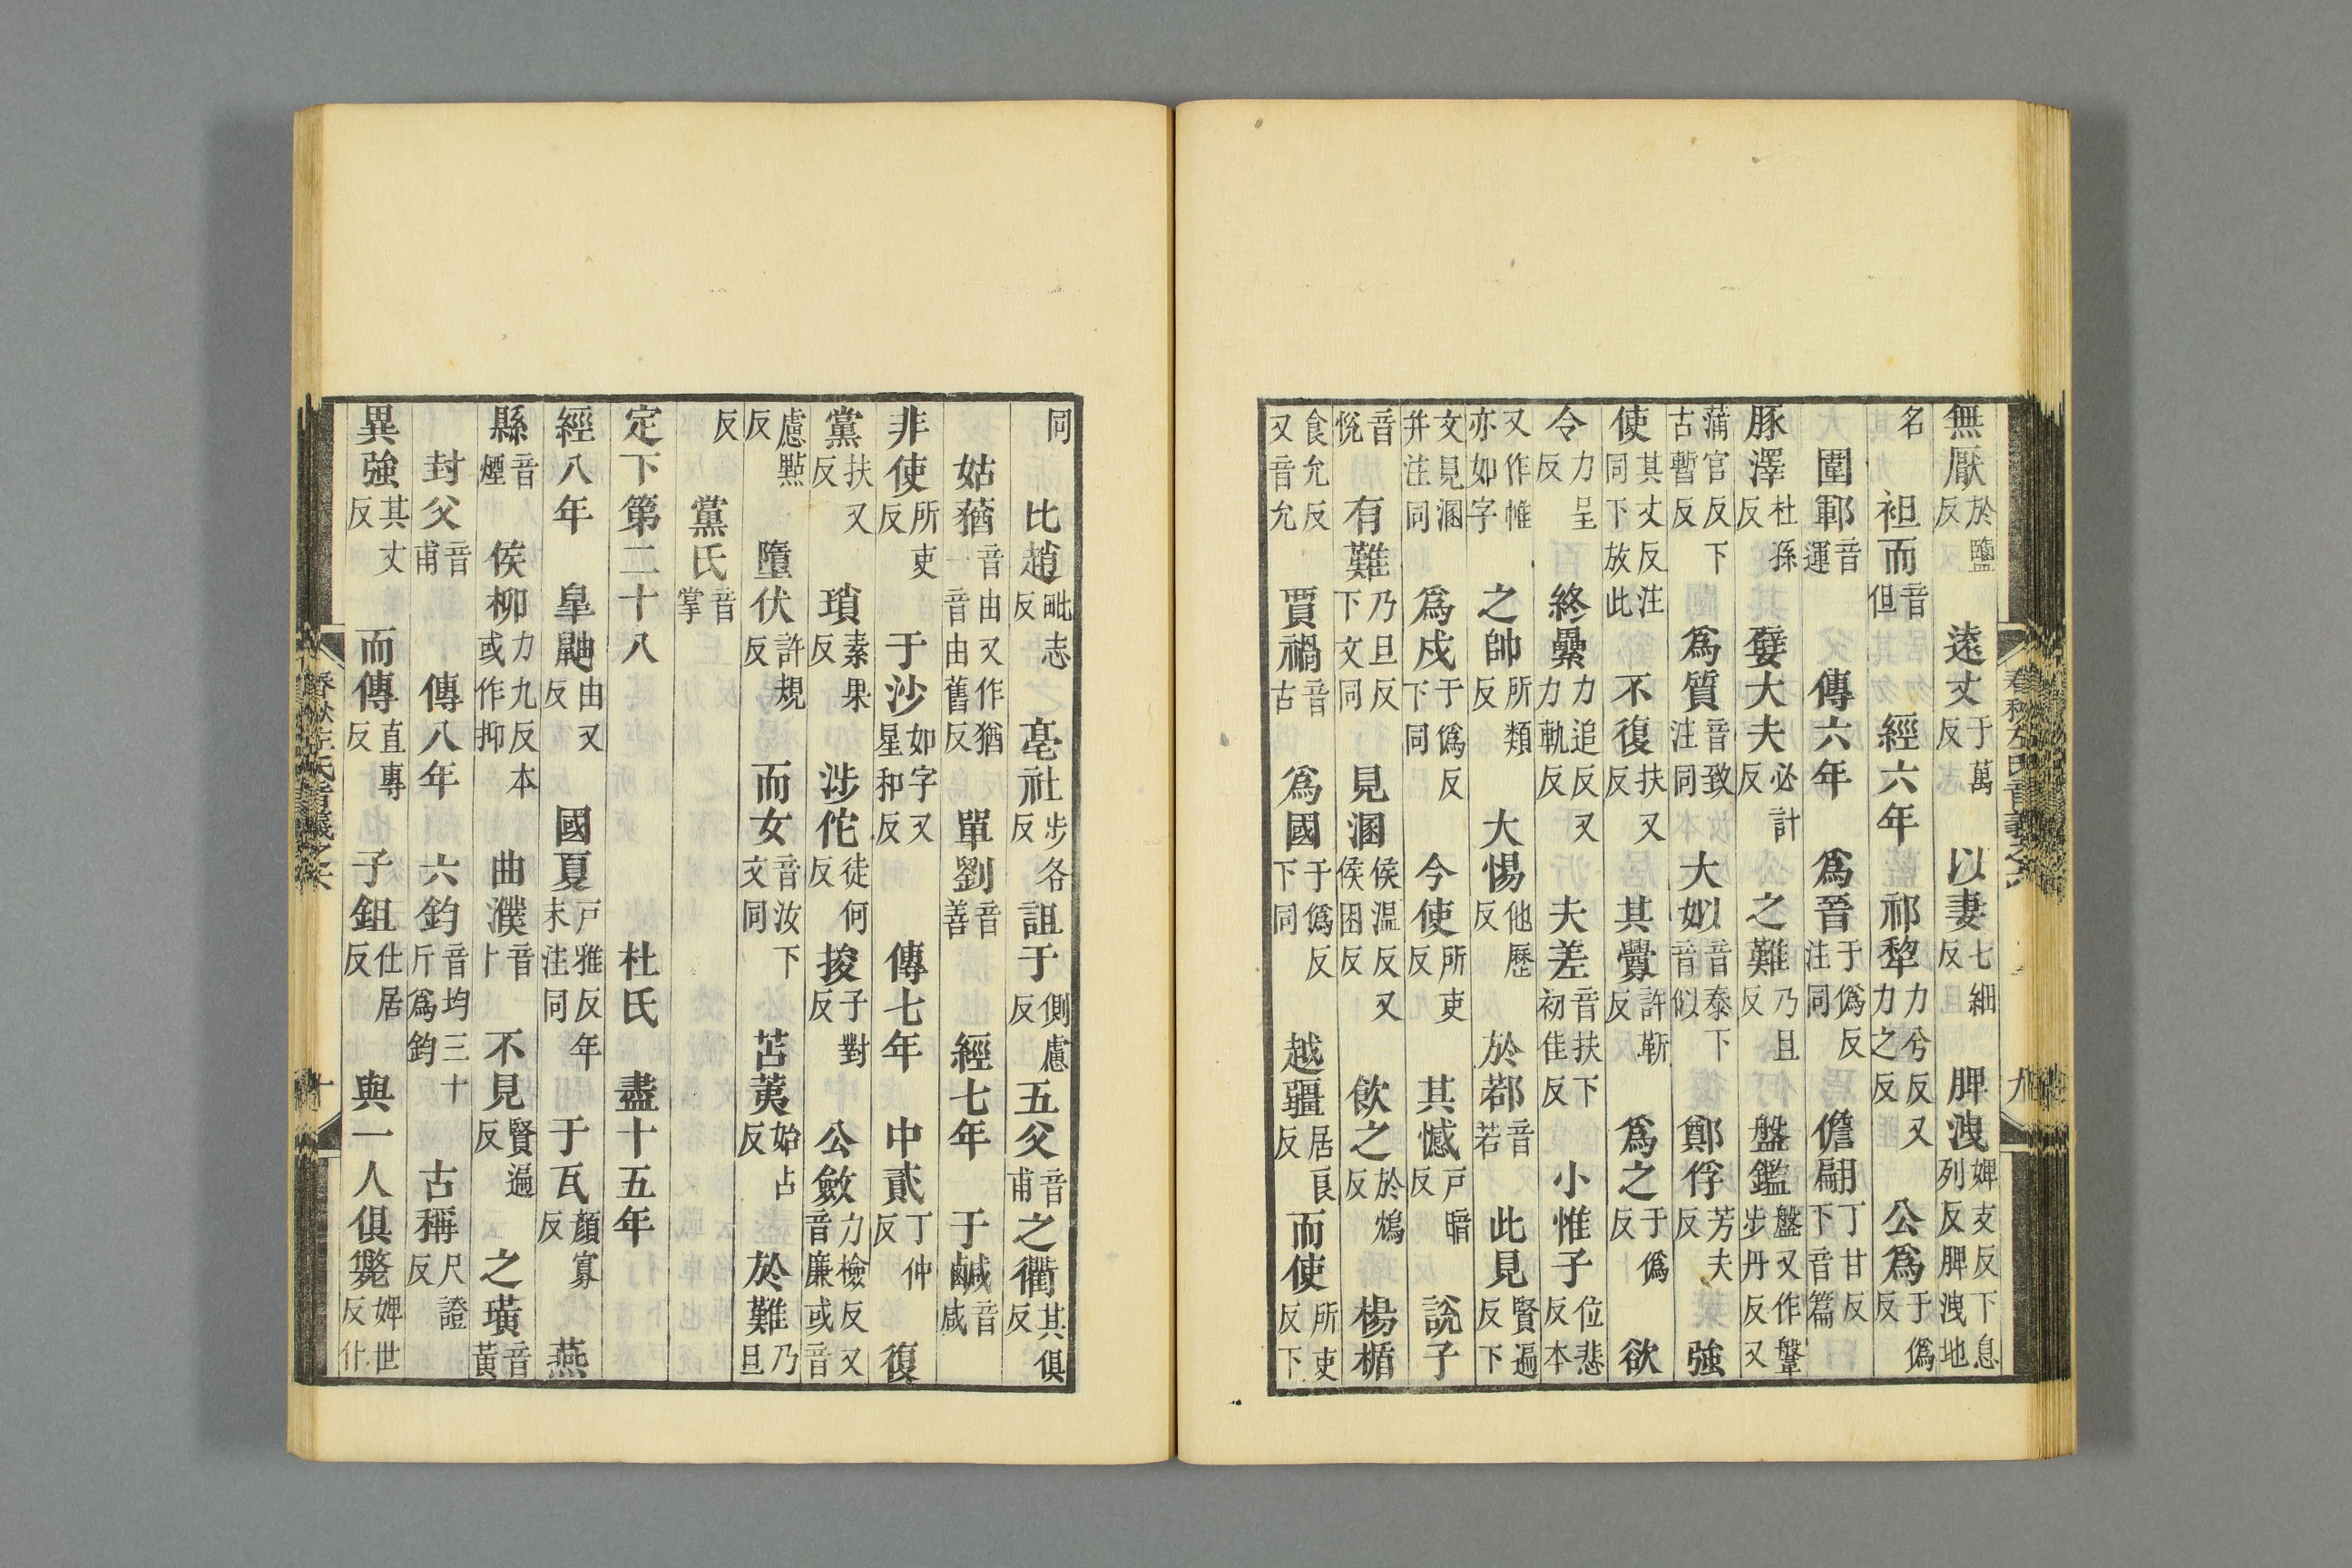 無厭於鹽反 遠丈于萬反 以妻七細反 脾洩婢支反下息列反脾洩地
名 袒而音但 經六年 祁犂力兮反又力之反 公爲于僞反
圍鄆音運 傳六年 爲晉于僞反注同 儋翩丁甘反下音篇
豚澤杜孫反 嬖大夫必計反 之難乃旦反 盤鑑盤又作鞶步丹反又
蒲官反下古暫反 爲質音致注同 大姒音泰下音似 鄭俘芳夫反 強
使其丈反注同下放此 不復扶又反 其釁許靳反 爲之于僞反 欲
令力呈反 終纍力追反又力軌反 夫差音扶下初佳反 小惟子位悲反本
又作帷亦如字 之帥所類反 大惕他歷反 於鄀音若 此見賢遍反下
文見溷并注同 爲戍于僞反下同 今使所吏反 其憾戸暗反 說子
音悅 有難乃旦反下文同 見溷侯溫反又侯困反 飲之於鴆反 楊楯
食允反又音允 賈禍音古 爲國于僞反下同 越疆居良反 而使所吏反下
春秋左氏音義之六 九
同 比趙毗志反 亳社步各反 詛于側慮反 五父音甫 之衢其俱反
姑蕕音由又作猶一音由舊反 單劉音善 經七年 于鹹音咸
非使所吏反 于沙如字又星和反 傳七年 中貳丁仲反 復
黨扶又反 瑣素果反 涉佗徒何反 捘子對反 公斂力檢反又音廉或音
慮㸃反 墮伏許規反 而女音汝下文同 苫荑始占反 於難乃旦
反 黨氏音掌
定下第二十八 杜氏 盡十五年
經八年 皐鼬由又反 國夏戸雅反年末注同 于瓦顔寡反 燕
縣音煙 侯柳力九反本或作抑 曲濮音卜 不見賢遍反 之璜音黃
封父音甫 傳八年 六鈞音均三十斤爲鈞 古稱尺證反
異強其丈反 而傳直專反 子鉏仕居反 與一人俱斃婢世反什
春秋左氏音義之六 十